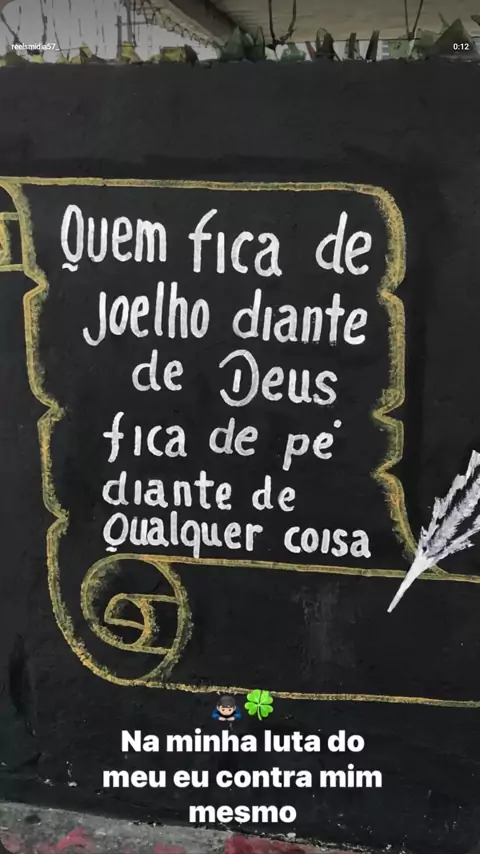 reelsmidia57_
0:12
Quem fica de
Joelho diante
de Deus
fica de pé
diante de
Qualquer coisa
Na minha luta do
meu eu contra mim
mesmo